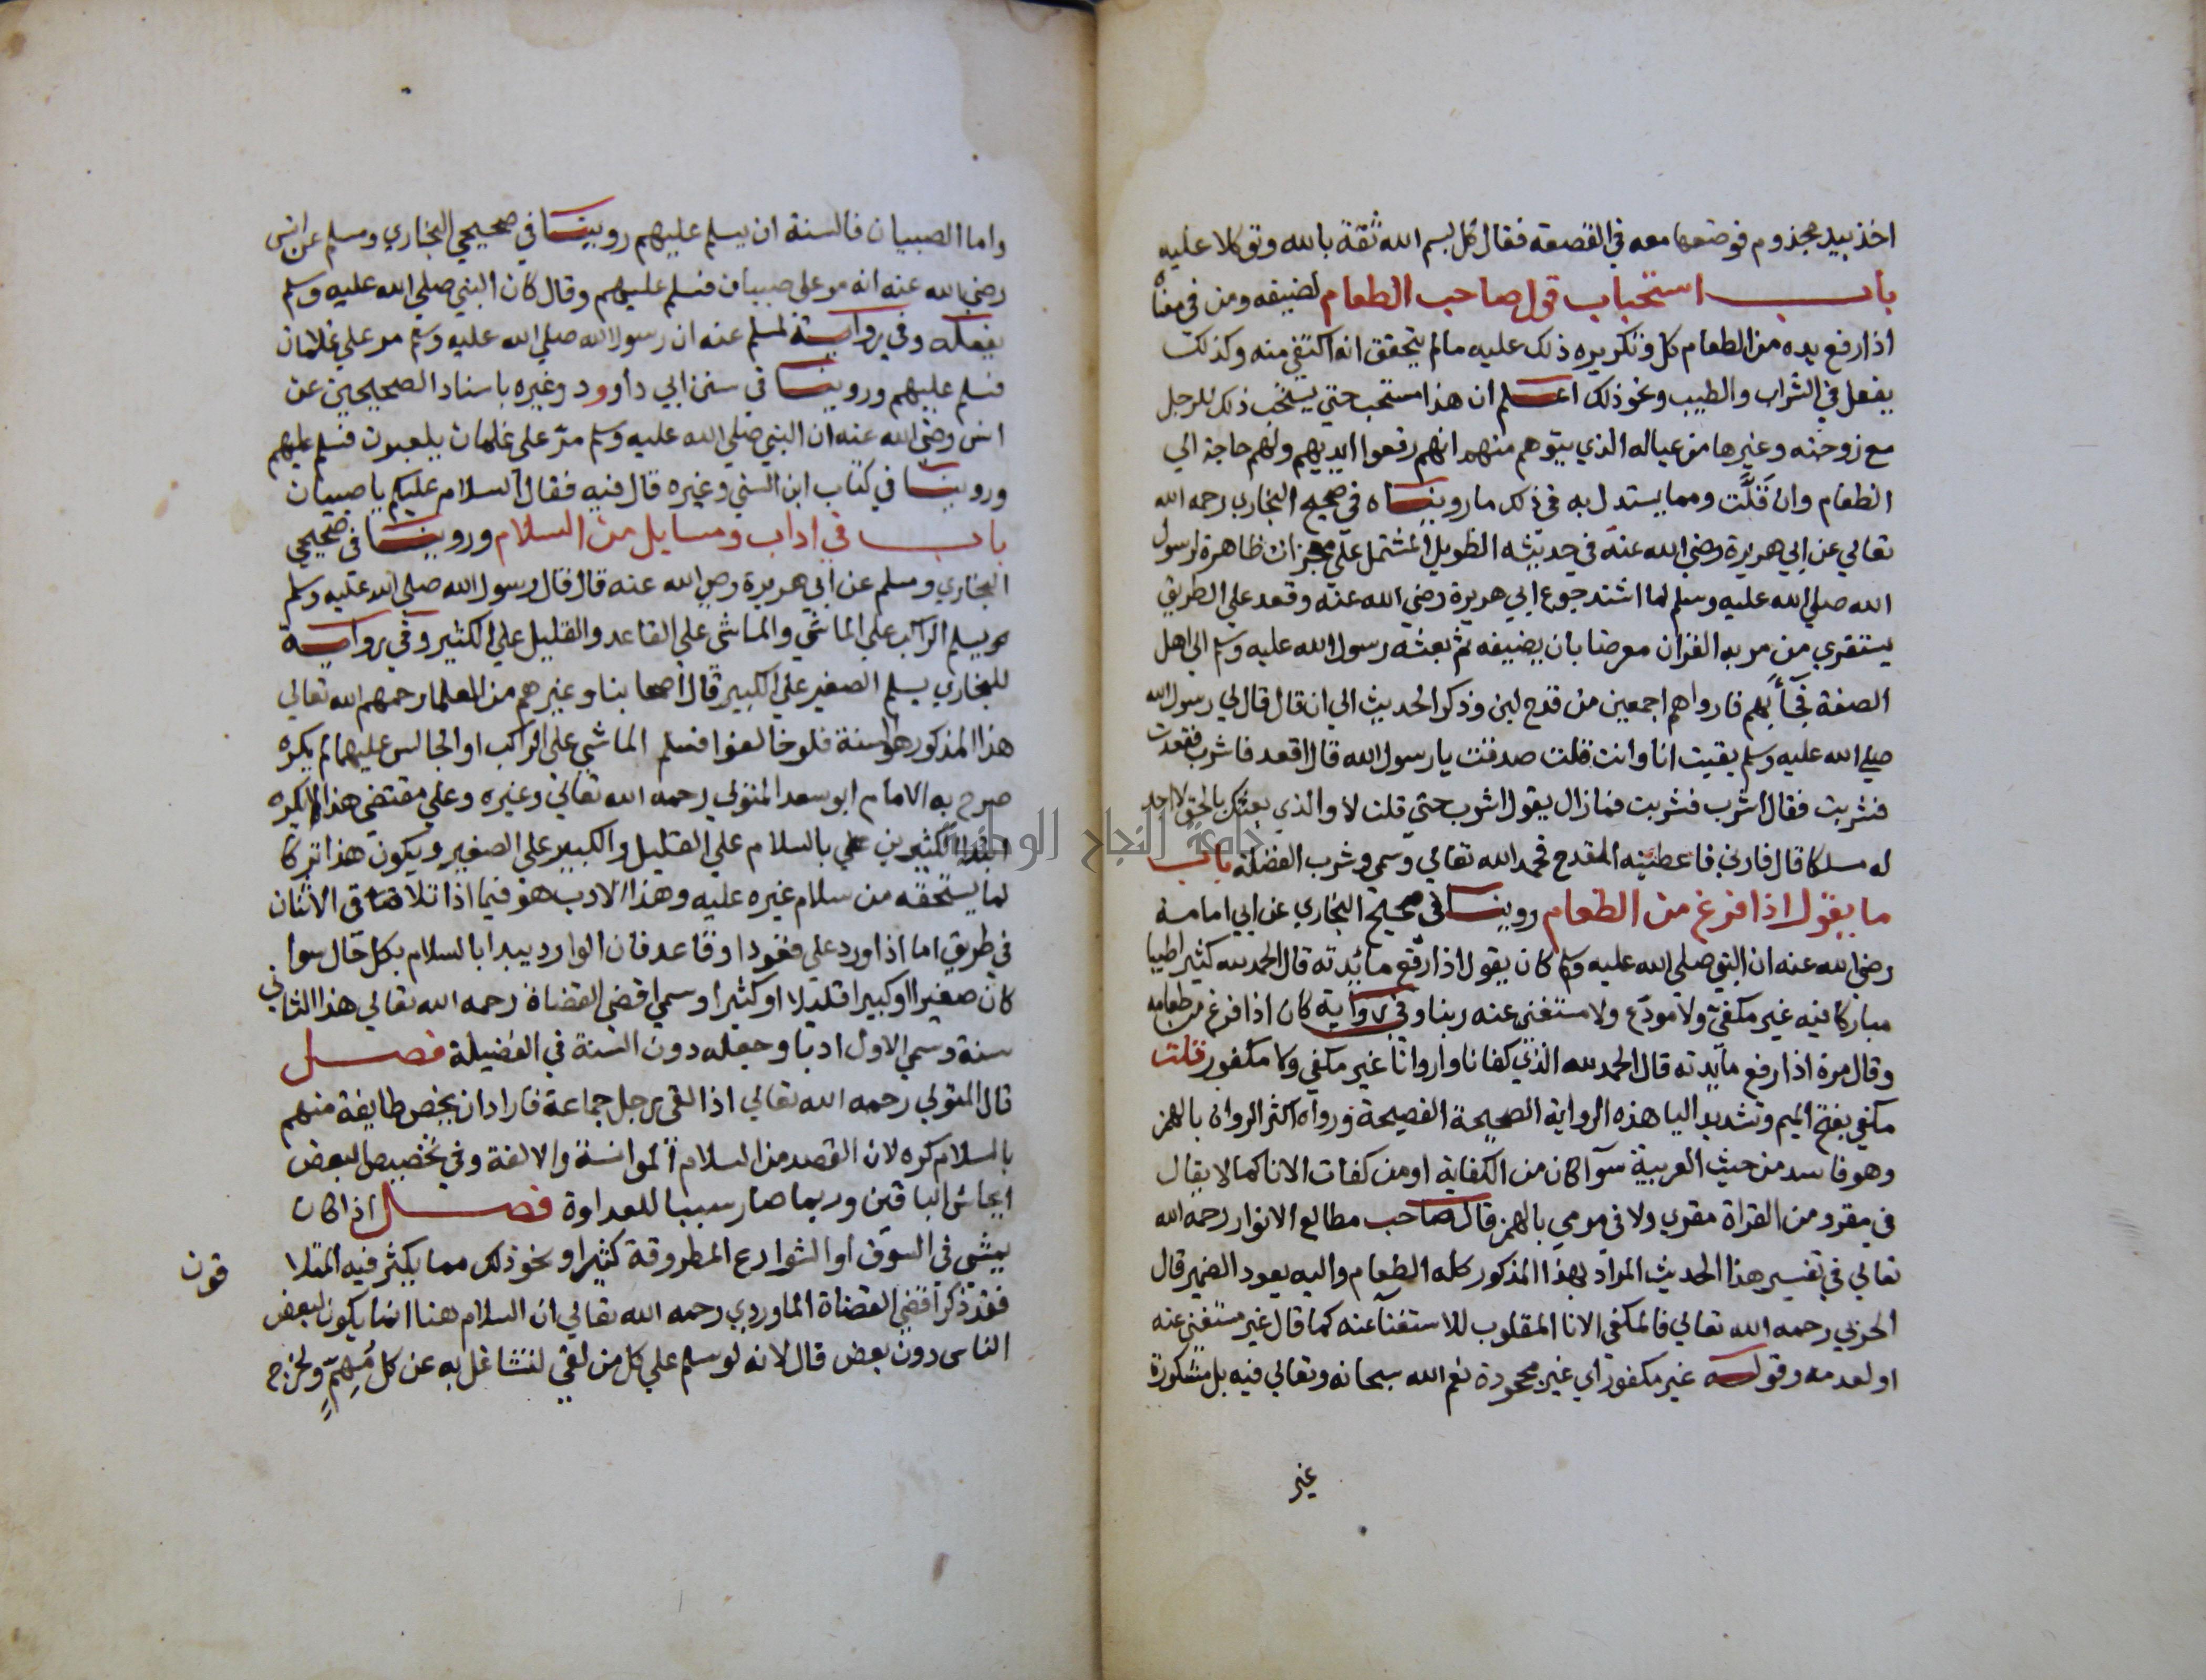 اخذ بيد مجذوم فوضعها معه في القصعة فقال كل بسم الله ثقة بالله وتوكلا عليه
باب استحباب قول صاحب الطعام لضيفه ومن في معناه
اذا رفع يده من الطعام كل وتكريره ذلك عليه مالم يتحقق انه اكتفي منه وكذلك
يفعل في الشراب والطيب ونحو ذلك اعلم ان هذا مستحب حتي يستحب ذلك للرجل
مع زوجته وغيرها من عياله الذي يتوهم منهم انهم رفعوا ايديهم ولهم حاجة الي
الطعام وان قلَّت ومما يستدل به في ذلك ما رويناه في صحيح البخاري رحمه الله
تعالي عن ابي هريرة رضي الله عنه في حديثه الطويل المشتمل علي معجزات ظاهرة لرسول
الله صلي الله عليه وسلم لما اشتد جوع ابي هريرة رضي الله عنه وقعد علي الطريق
يستقري من مر به القران معرضا بان يضيفه ثم بعثه رسول الله عليه وسلم الي اهل
الصفة فجآء بهم فارواهم اجمعين من قدح لبن وذكر الحديث الي ان قال قال لي رسول الله
صلي الله عليه وسلم بقيت انا وانت قلت صدقت يا رسول الله قال اقعد فاشرب فقعدت
فشربت فقال اشرب فشربت فما زال يقول اشرب حتي قلت لا والذي بعثك بالحق لا اجد
له مسلكا قال فارني فاعطيته القدح فحمد الله تعالي وسمي وشرب الفضلة باب
ما يقول اذا فرغ من الطعام روينا في صحيح البخاري عن ابي امامة
رضي الله عنه ان النبي صلي الله عليه وسلم كان يقول اذا رفع مائدته قال الحمد لله كثيرا طيبا
مباركا فيه غير مكفي ولا مودع ولا مستغني عنه ربنا وفي رواية كان اذا فرغ من طعامه
وقال مرة اذا رفع مآيدته قال الحمد لله الذي كفانا واروانا غير مكفي ولا مكفور قلت
مكفي بفتح الميم وتشديد اليا هذه الرواية الصحيحة الفصيحة ورواه اكثر الرواة بالهمز
وهو فاسد من حيث العربية سوآ كان من الكفاية او من كفات الانا كما لا يقال
في مقرو من القراة مقري ولا في مرمي بالهمز قال صاحب مطالع الانوار رحمه الله
تعالي في تفسير هذا الحديث المراد بهذا المذكور كله الطعام واليه يعود الضمير قال
الحربي رحمه الله تعالي فالمكفي الانا المقلوب للاستغنآ عنه كما قال غير مستغني عنه
او لعدمه وقوله غير مكفور اي غير مجحودة نعم الله سبحانه وتعالي فيه بل مشكورة
غير
واما الصبيان فالسنة ان يسلم عليهم روينا في صحيحي البخاري ومسلم عن انس
رضي الله عنه انه مر علي صبيان فسلم عليهم وقال كان النبي صلي الله عليه وسلم
يفعله وفي رواية لمسلم عنه ان رسول الله صلي الله عليه وسلم مر علي غلمان
فسلم عليهم وروينا في سنن ابي داوود وغيره باسناد الصحيحين عن
انس رضي الله عنه ان النبي صلي الله عليه وسلم مرّ علي غلمان يلعبون فسلم عليهم
وروينا في كتاب ابن السني وغيره قال فيه فقال السلام عليكم يا صبيان
باب في اداب ومسايل من السلام وروينا في صحيحي
البخاري ومسلم عن ابي هريرة رضي الله عنه قال قال رسول الله صلي الله عليه وسلم
يسلم الراكب علي الماشي والماشي علي القاعد والقليل علي الكثير وفي رواية
للبخاري يسلم الصغير علي الكبير قال اصحابنا وغيرهم من العلما رحمهم الله تعالي
هذا المذكور هو السنة فلو خالفوا فسلم الماشي علي الراكب او الجالس عليهما لم يكره
صرح به الامام ابو سعد المتولي رحمه الله تعالي وغيره وعلي مقتضي هذا لا يكره
ابتدا الكثيرين علي بالسلام علي القليل والكبير علي الصغير ويكون هذا تركا
لما يستحقه من سلام غيره عليه وهذا الادب هو فيما اذا تلاقي الاثنان
في طريق اما اذا ورد علي قعود او قاعد فان الوارد يبدا بالسلام بكل حال سوا
كان صغيرا او كبيرا قليلا او كثيرا وسمي اقضي القضاة رحمه الله تعالي هذا الثاني
سنة وسمي الاول ادبا وجعله دون السنة في الفضيلة فصل
قال المتولي رحمه الله تعالي اذا لقي رجل جماعة فاراد ان يخص طايفة منهم
بالسلام كره لان القصد من السلام الموانسة والالفة وفي تخصيص البعض
ايحاش الباقين وربما صار سببا للعداوة فصل اذا كان
يمشي في السوق او الشوارع المطروقة كثيرا ونحو ذلك مما يكثر فيه المتلا
قون
فقد ذكر اقضي القضاة الماوردي رحمه الله تعالي ان السلام هنا انما يكون لبعض
الناس دون بعض قال لانه لو سلم علي كل من لقي لتشاغل به عن كل مُهِمٍّ ولخرج
جامعة النجاح الوطنية